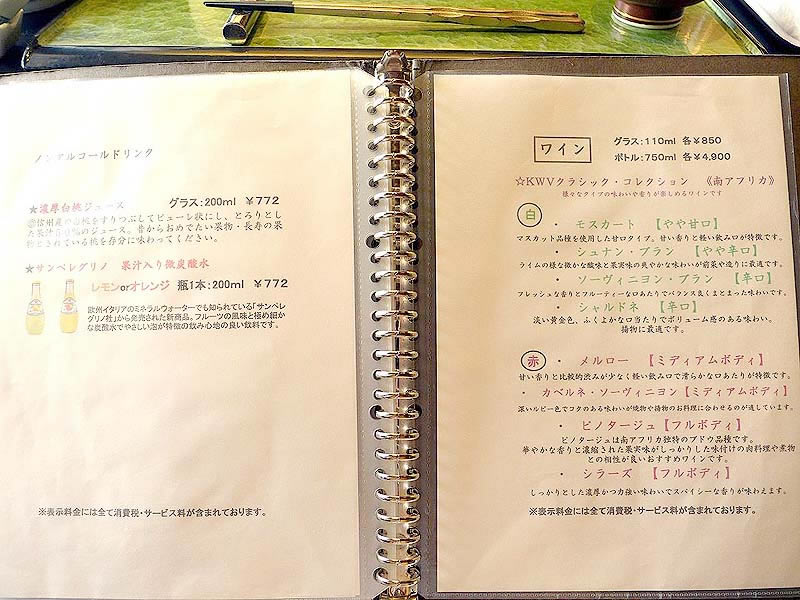 ノンアルコールドリンク
★濃厚白桃ジュース グラス:200ml ￥772
信州産の白桃をすりつぶしてピューレ状にし、とろりとし
のジュース。昔からおめでたい果物・長寿の果
物とされている桃を存分に味わってください。
★サンペレグリノ 果汁入り微炭酸水
レモンorオレンジ 瓶1本:200ml ￥772
欧州イタリアのミネラルウォーターでも知られている「サンペレ
グリノ社」から発売された新商品。フルーツの風味と極め細か
な炭酸水でやさしい泡が特徴の飲み心地の良い飲料です。
※表示料金には全て消費税・サービス料が含まれております。
ワイン
グラス:110ml 各￥850
ボトル:750ml 各￥4,900
☆KWVクラシック・コレクション 《南アフリカ》
様々なタイプの味わいや香りが楽しめるワインです
白
・ モスカート 【やや甘口】
マスカット品種を使用した甘口タイプ。甘い香りと軽い飲み口が特徴です。
・ シュナン・ブラン 【やや辛口】
ライムの様な微かな酸味と果実味の爽やかな味わいが前菜や造りに最適です。
・ ソーヴィニヨン・ブラン 【辛口】
フレッシュな香りとフルーティーな口あたりでバランス良くまとまった味わいです。
・ シャルドネ 【辛口】
淡い黄金色、ふくよかな口当たりでボリューム感のある味わい。
揚物に最適です。
赤
・ メルロー 【ミディアムボディ】
甘い香りと比較的渋みが少なく軽い飲み口で滑らかな口あたりが特徴です。
・ カベルネ・ソーヴィニヨン【ミディアムボディ】
深いルビー色でコクのある味わいが焼物や揚物のお料理に合わせるのが適しています。
・ ピノタージュ【フルボディ】
ピノタージュは南アフリカ独特のブドウ品種です。
華やかな香りと濃縮された果実味がしっかりした味付けの肉料理や煮物
との相性が良いおすすめワインです。
・ シラーズ 【フルボディ】
しっかりとした濃厚かつ力強い味わいでスパイシーな香りが味わえます。
※表示料金には全て消費税・サービス料が含まれております。